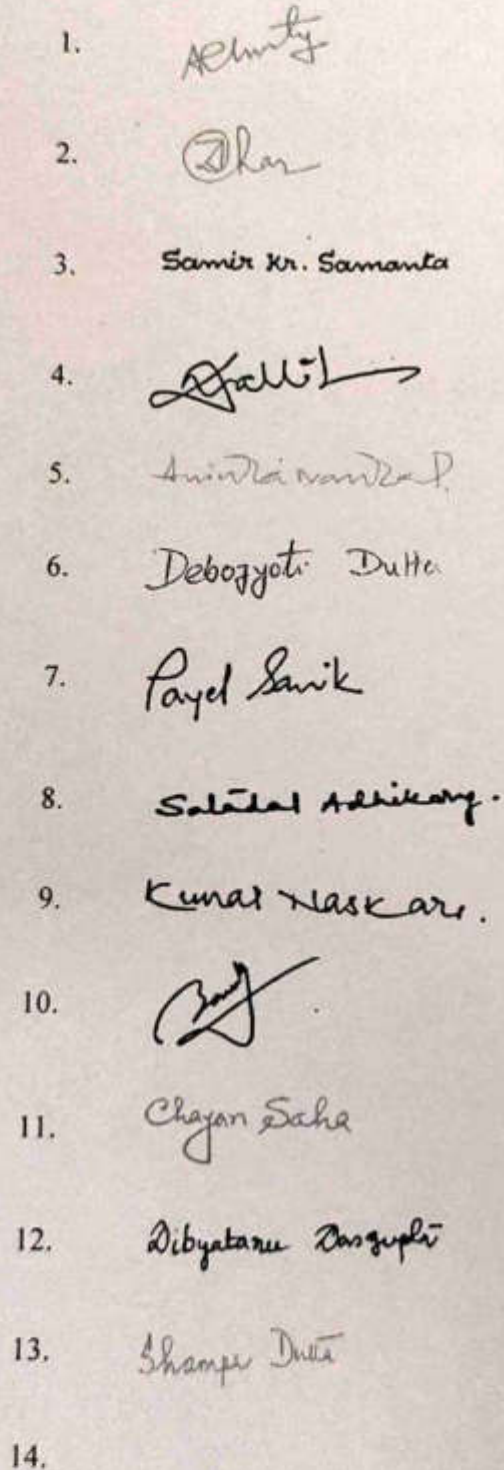 1.
2. Dhar
3. Samir Kr. Samanta
4.
5.
6. Debojyoti Dutta
7. Payel Sanik
8. Saladal Adhikary.
9. Kunal Naskar.
10.
11. Chayan Saha
12. Dibyatanu Dasgupta
13. Shampa Dutta
14.